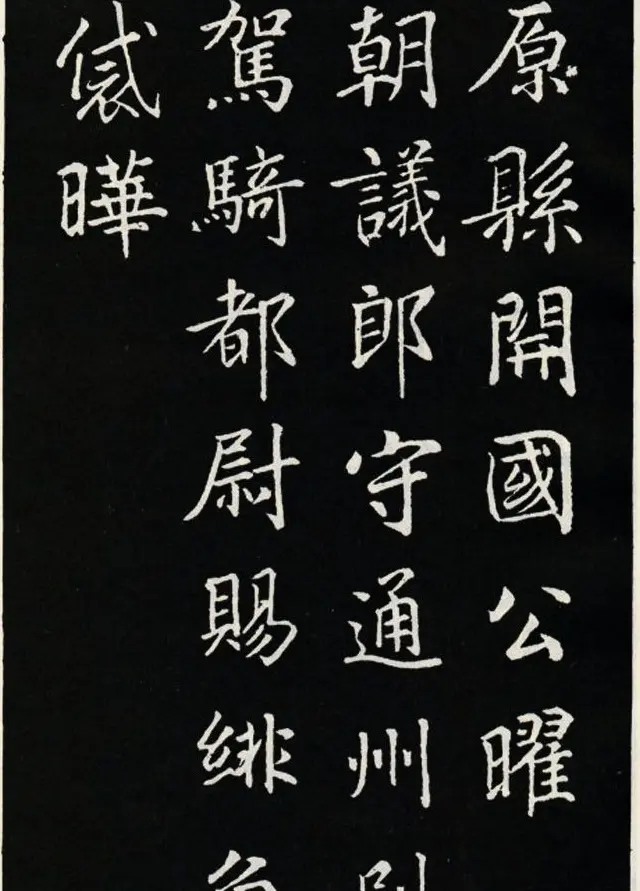 原縣開國公曜
朝議郎守通州
駕騎都尉賜緋
袋曄